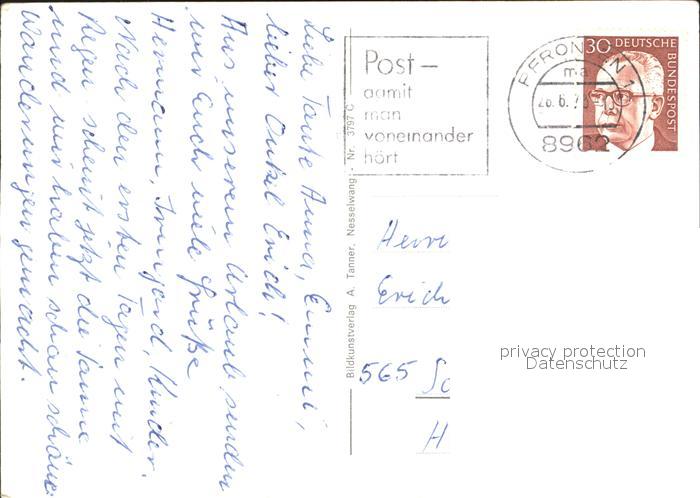 Liebe Tante Anna, Emmi,
lieber Onkel Erich!
Aus unserem Urlaub senden
wir Euch viele Grüße
Hermann, Irmgard, Kinder.
Nach den ersten Tagen mit
Regen scheint jetzt die Sonne
und wir haben schon schöne
Wanderungen gemacht.
Bildkunstverlag A. Tanner, Nesselwang - Nr. 3797 C
Post –
damit
man
voneinander
hört
PFRONTEN 1
ma
26.6.73
8962
30 DEUTSCHE
BUNDESPOST
Herrn
Erich
565 So
H
privacy protection
Datenschutz